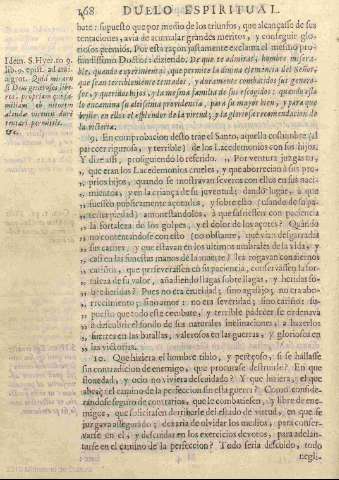 168 DUELO ESPIRITUAL.
bate: supuesto que por medio de los triunfos, que alcançasse de sus
tentaciones, avia de acumular grandes meritos, y conseguir glo-
riosos premios. Por esta razon justamente exclama el mesmo pro-
fundissimo Doctor: diziendo. De que te admiras, hombre misera-
ble, quando experimentas, que permite la divina clemencia del Señor,
que sean terriblemente tentados, y duramente combatidos sus genero-
sos, y queridos hijos, y la mesma familia de sus escogidos: quando esto
lo encamina su altissima providencia, para su mayor bien, y para que
en ellos el esplendor de la virtud, y la gloriosa recomendacion de
la victoria.
Idem. S. Hyer. to 9.
lib. 9. epist. ad
Quid miraris
si Deus generosos
&c.
9. En comprobacion desto trae el Santo, aquella costumbre (al
parecer rigurosa, y terrible) de los Lacedemonios con sus hijos.
Y dize assi, prosiguiendo lo referido. Por ventura juzgas tu,
„ que eran los Lacedemonios crueles, y que aborrecian à sus pro-
„ prios hijos, quando se mostravan severos con ellos en sus naci-
„ mientos, y en la criança de su juventud; dando lugar, à que
„ fuessen publicamente açotados, y sobre esto (usando de su pa-
„ terna piedad) amonestandolos, à que sufriessen con paciencia
„ la fortaleza de los golpes, y el dolor de los açotes? Quando
„ no contentandose con esto (no obstante, que vian desgarradas
„ sus carnes, y que estavan en los ultimos umbrales de la vida, y
„ casi en las funestas manos de la muerte) les rogavan con tiernos
„ cariños, que perseverassen en su paciencia, conservassen la for-
„ taleza de su valor, añadiendo llagas sobre llagas, y heridas so-
„ bre heridas? Pues no era crueldad, sino agasajo; no era abo-
„ rrecimiento; sino amor: no era severidad; sino cariño: su-
„ puesto que todo este combate, y terrible padecer se ordenava
„ à descubrir el fondo de sus naturales inclinaciones, à hazerlos
„ intrepidos en las batallas, valerosos en las guerras, y gloriosos en
„ las victorias.
10. Que hiziera el hombre tibio, y pereçoso, si se hallasse
sin contradicion de enemigo, que procurasse destruirle? En que
floxedad, y ocio no viviera descuidado? Y que hiziera, el que
abre el camino de la perfeccion sin esta guerra? Como conside-
randose seguro de contrarios, que le combatiessen, y libre de ene-
migos, que solicitassen derribarle del estado de virtud, en que se
juzgava assegurado; dexaria de olvidar los medios, para conser-
varse en el, y descuidar en los exercicios devotos, para adelan-
tarse en el camino de la perfeccion? Todo seria descuido, todo
negli-
2010 Ministerio de Cultura